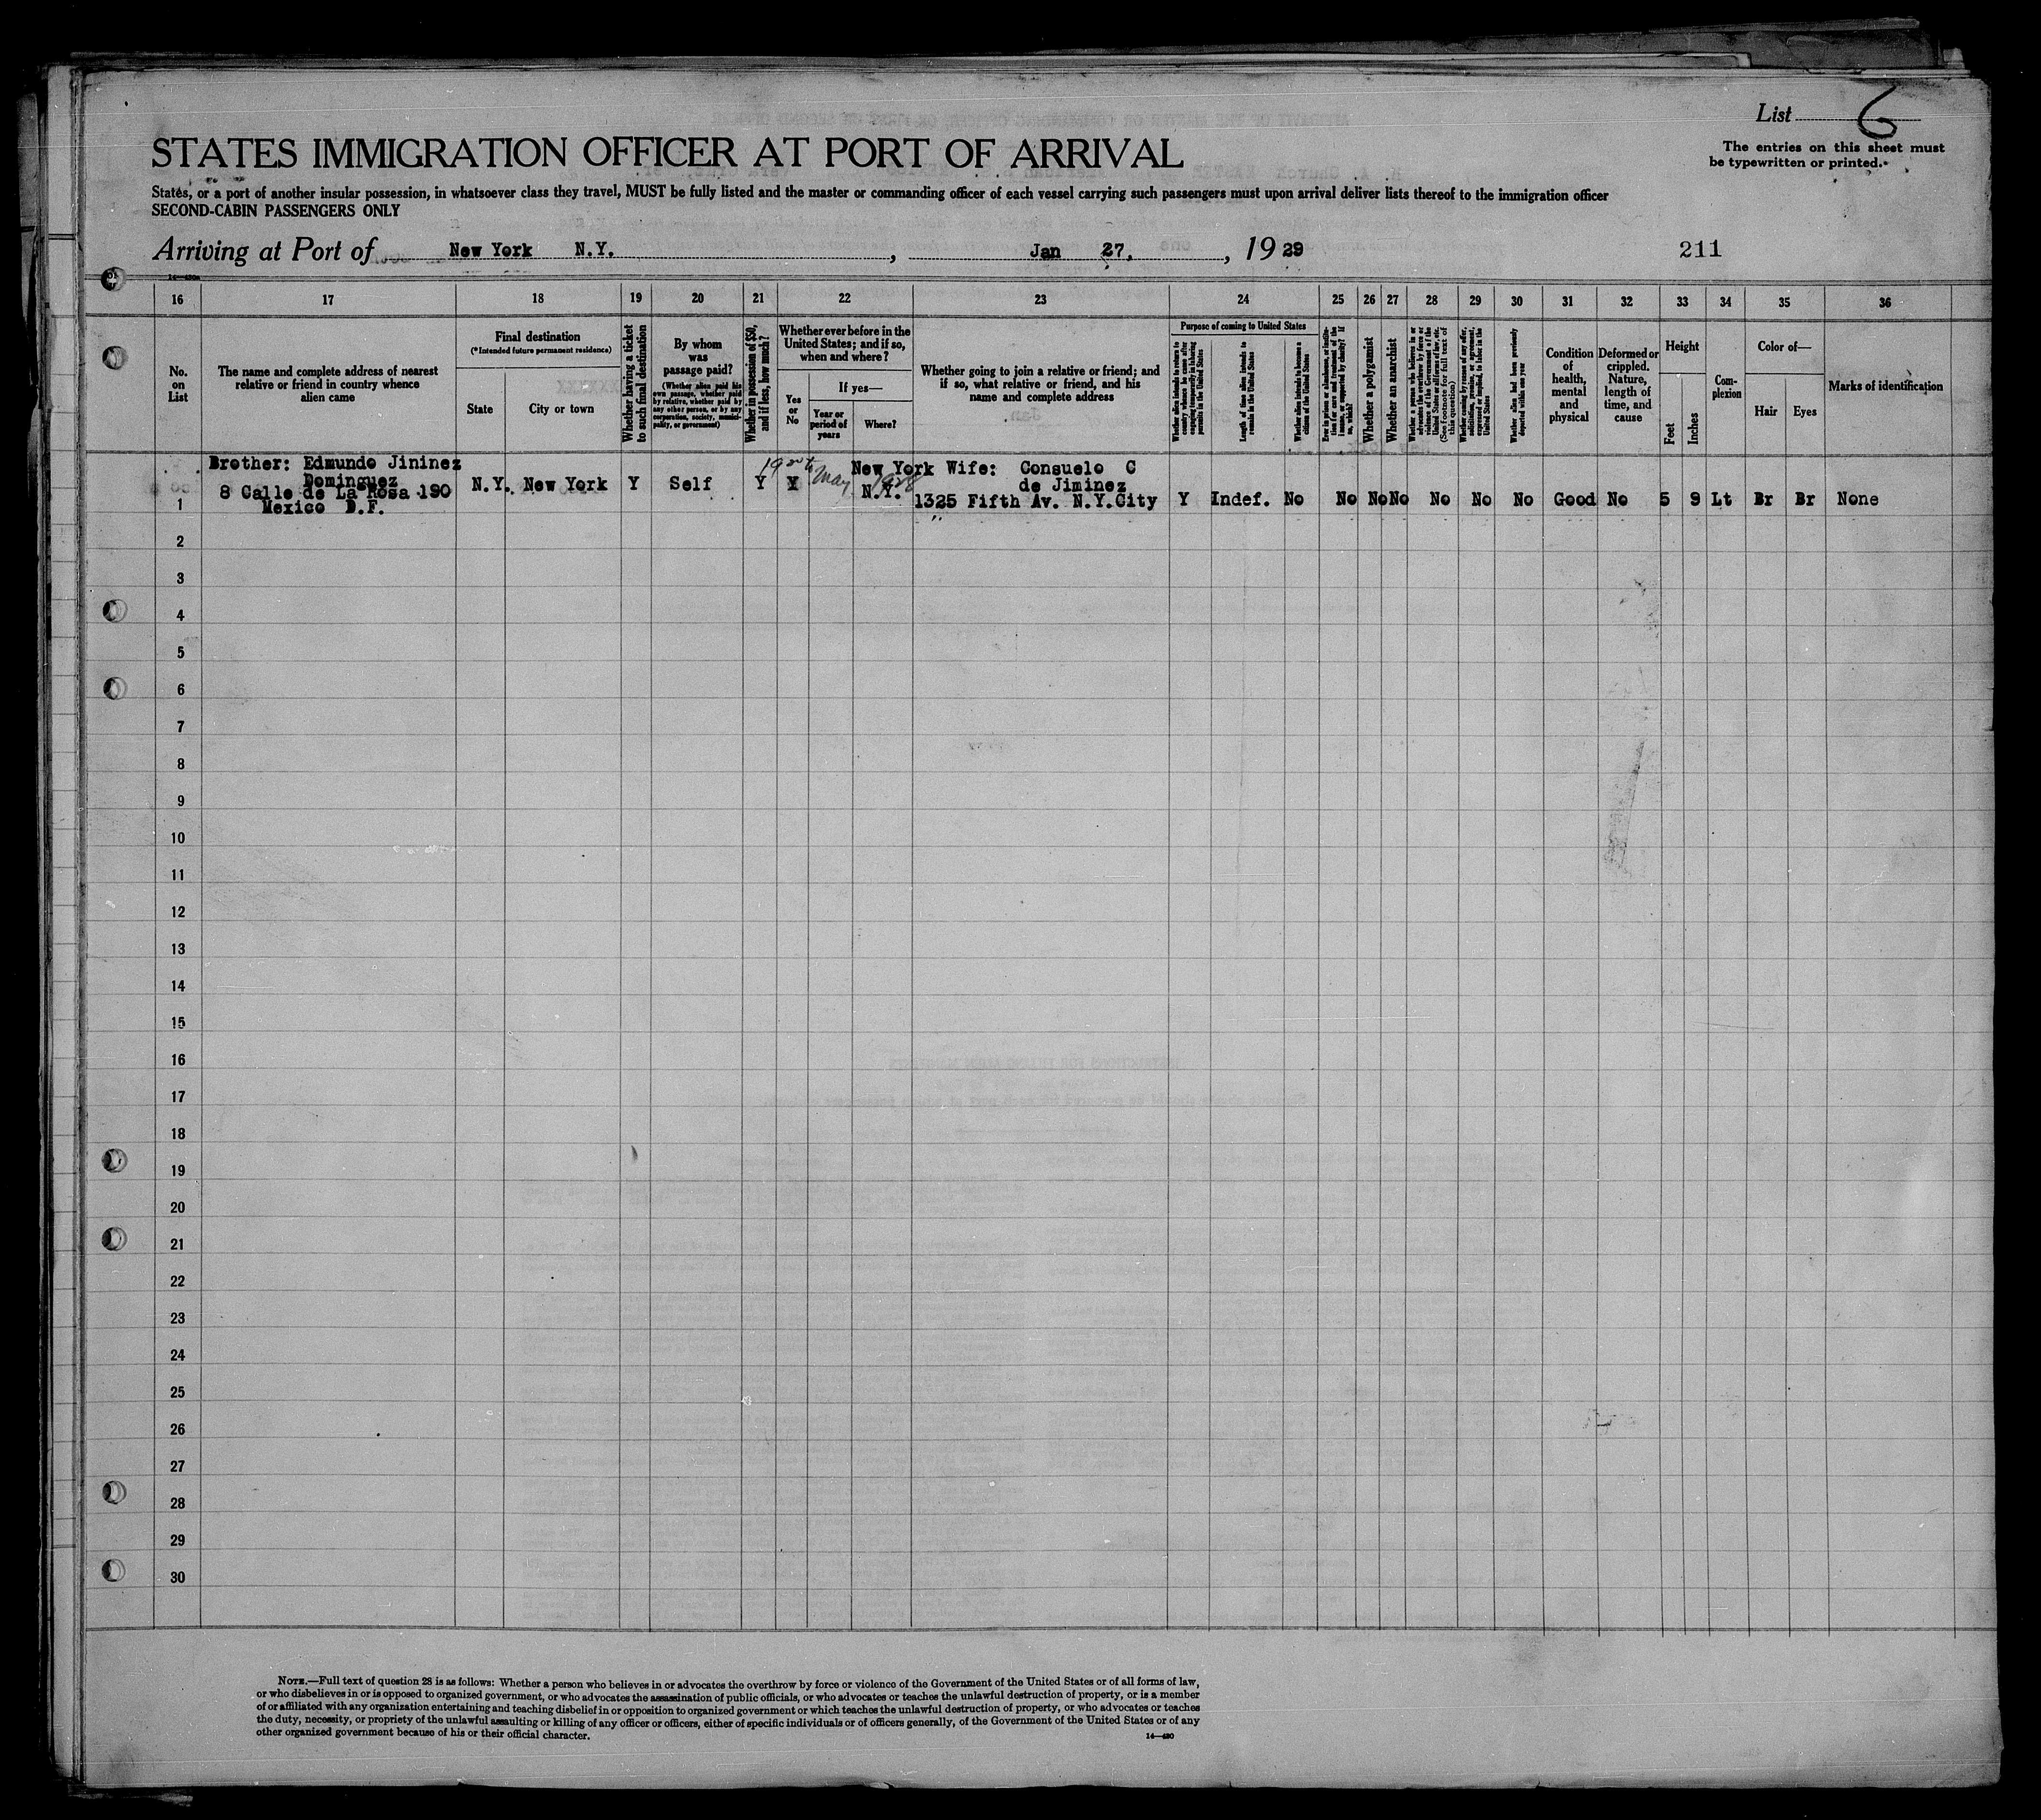 List 6
The entries on this sheet must
be typewritten or printed.
STATES IMMIGRATION OFFICER AT PORT OF ARRIVAL
States, or a port of another insular possession, in whatsoever class they travel, MUST be fully listed and the master or commanding officer of each vessel carrying such passengers must upon arrival deliver lists thereof to the immigration officer
SECOND-CABIN PASSENGERS ONLY
Arriving at Port of New York N.Y. , Jan 27, , 19 29
211
16 17 18 19 20 21 22 23 24 25 26 27 28 29 30 31 32 33 34 35 36
No.
on
List
The name and complete address of nearest
relative or friend in country whence
alien came
Final destination
(*Intended future permanent residence)
State
City or town
Whether having a ticket
to such final destination
By whom
was
passage paid?
(Whether alien paid his
own passage, whether paid
by relative, whether paid by
any other person, or by any
corporation, society, munici-
pality, or government)
Whether in possession of $50,
and if less, how much?
Whether ever before in the
United States; and if so,
when and where?
Yes
or
No
If yes—
Year or
period of
years
Where?
Whether going to join a relative or friend; and
if so, what relative or friend, and his
name and complete address
Purpose of coming to United States
Whether alien intends to return to
country whence he came after
engaging temporarily in laboring
pursuits in the United States
Length of time alien intends to
remain in the United States
Whether alien intends to become a
citizen of the United States
Ever in prison or almshouse, or institu-
tion for care and treatment of the
insane, or supported by charity? If
so, which?
Whether a polygamist
Whether an anarchist
Whether a person who believes in or
advocates the overthrow by force or
violence of the Government of the
United States or all forms of law, etc.
(See footnote for full text of
this question)
Whether coming by reason of any offer,
solicitation, promise, or agreement,
expressed or implied, to labor in the
United States
Whether alien had been previously
deported within one year
Condition
of
health,
mental
and
physical
Deformed or
crippled.
Nature,
length of
time, and
cause
Height
Feet
Inches
Com-
plexion
Color of—
Hair
Eyes
Marks of identification
Brother: Edmundo Jininez
Dominguez
8 Calle de La Rosa 190
Mexico D.F.
N.Y. New York Y Self Y Y May 1928
New York
N.Y.
Wife: Consuelo C
de Jiminez
1325 Fifth Av. N.Y.City
1 Y Indef. No No No No No No No Good No 5 9 Lt Br Br None
2
3
4
5
6
7
8
9
10
11
12
13
14
15
16
17
18
19
20
21
22
23
24
25
26
27
28
29
30
NOTE.—Full text of question 28 is as follows: Whether a person who believes in or advocates the overthrow by force or violence of the Government of the United States or of all forms of law,
or who disbelieves in or is opposed to organized government, or who advocates the assassination of public officials, or who advocates or teaches the unlawful destruction of property, or is a member
of or affiliated with any organization entertaining and teaching disbelief in or opposition to organized government or which teaches the unlawful destruction of property, or who advocates or teaches
the duty, necessity, or propriety of the unlawful assaulting or killing of any officer or officers, either of specific individuals or of officers generally, of the Government of the United States or of any
other organized government because of his or their official character.
14—480